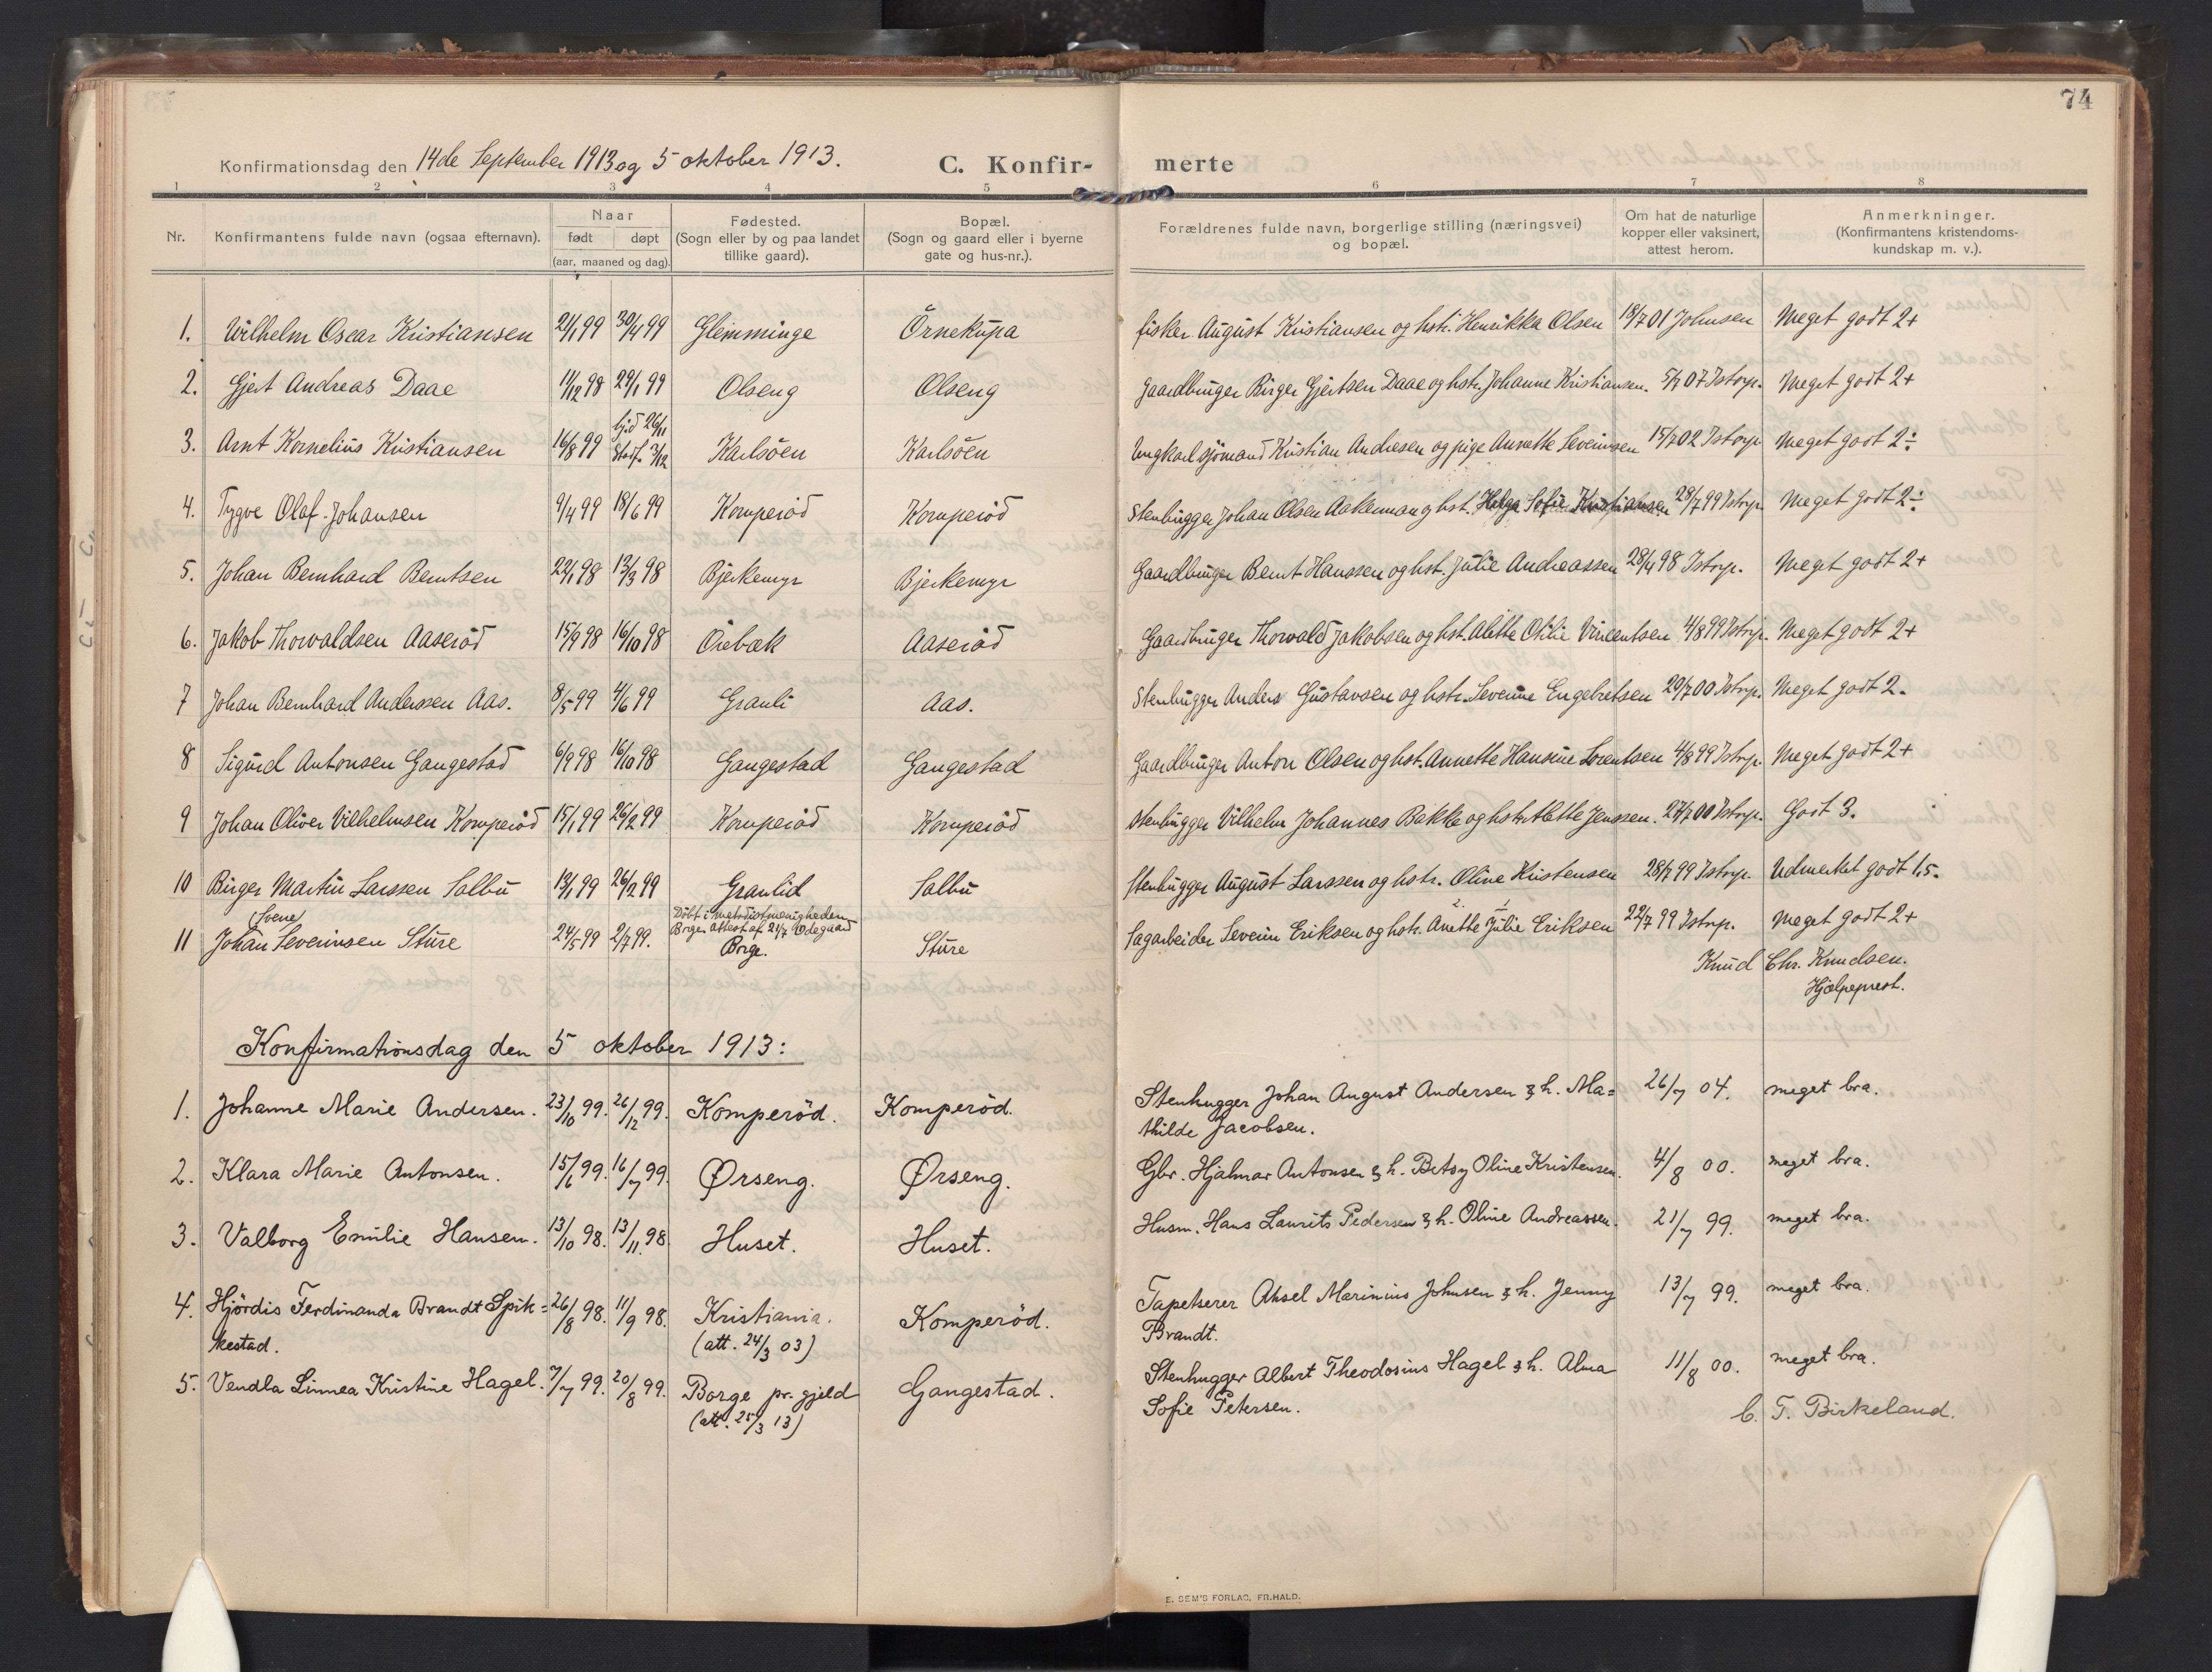 74
Konfirmationsdag den 14de September 1913 og 5 oktober 1913. C. Konfir- merte
1 2 3 4 5 6 7 8
Nr. Konfirmantens fulde navn (ogsaa efternavn). Naar født døpt (aar, maaned og dag). Fødested. (Sogn eller by og paa landet tillike gaard). Bopæl. (Sogn og gaard eller i byerne gate og hus-nr.). Forældrenes fulde navn, borgerlige stilling (næringsvei) og bopæl. Om hat de naturlige kopper eller vaksinert, attest herom. Anmerkninger. (Konfirmantens kristendoms- kundskap m. v.).
1. Wilhelm Oscar Kristiansen 21/1 99 30/4 99 Glemminge Örnekupa fisker August Kristiansen og hstr. Henrikka Olsen 18/7 01 Johnsen Meget godt 2+
2. Gjert Andreas Daae 11/12 98 29/1 99 Olseng Olseng Gaardbruger Birger Gjertsen Daae og hstr. Johanne Kristiansen. 5/7 07 Istrup. Meget godt 2+
3. Arnt Kornelius Kristiansen 16/8 99 hjd 26/11 Stadf. 3/12 Karlsöen Karlsöen Ungkarl sjömand Kristian Andresen og pige Annette Severinsen 15/7 02 Istrup Meget godt 2÷
4. Tygve Olaf Johansen 9/4 99 18/6 99 Komperöd Komperöd Stenhugger Johan Olsen Aakerman og hst. Helga Sofie Kristiansen 28/7 99 Istrup. Meget godt 2÷
5. Johan Bernhard Berntsen 22/1 98 13/3 98 Bjerkemyr Bjerkemyr Gaardbruger Bernt Hanssen og hst. Julie Andreassen 28/4 98 Istrup. Meget godt 2+
6. Jakob Thorvaldsen Aaseröd 15/9 98 16/10 98 Örebæk Aaseröd Gaardbruger Thorvald Jakobsen og hst. Alette Otilie Vincentsen 4/8 99 Istrup. Meget godt 2+
7 Johan Bernhard Anderssen Aas. 8/5 99 4/6 99 Granli Aas. Stenhugger Anders Gustavsen og hstr. Severine Engebretsen 20/7 00 Istrup. Meget godt 2.
8 Sigurd Antonsen Gangestad 6/9 98 16/10 98 Gangestad Gangestad Gaardbruger Anton Olsen og hst. Annette Hansine Lorentsen 4/8 99 Istrup. Meget godt 2+
9 Johan Oliver Vilhelmsen Komperöd 15/1 99 26/2 99 Komperöd Komperöd Stenhugger Vilhelm Johannes Bakke og hstr. Alette Jenssen. 27/7 00 Istrup. Godt 3.
10 Birger Martin Larssen Salbu 13/1 99 26/2 99 Granlid Salbu Stenhugger August Larssen og hstr. Oline Kristensen 28/7 99 Istrup. Udmerket godt 1,5.
11 Johan (Svene) Severinsen Sture 24/5 99 2/7 99. Döbt i metodistmenigheden Borge. Attest af 21/7 Ödegaard Borge. Sture Sagarbeider Severin Eriksen og hstr. Anette Julie Eriksen 22/7 99 Istrup. Meget godt 2+
Knud Chr. Knudsen.
Hjælpeprest.
Konfirmationsdag den 5 oktober 1913:
1. Johanne Marie Andersen. 23/10 99. 26/12 99. Komperöd. Komperöd. Stenhugger Johan August Andersen & h. Ma=
thilde Jacobsen. 26/7 04. meget bra.
2. Klara Marie Antonsen. 15/6 99. 16/7 99. Ørseng. Ørseng. Gbr. Hjalmar Antonsen & h. Betsy Oline Kristensen. 4/8 00. meget bra.
3. Valborg Emilie Hansen. 13/10 98. 13/11 98. Huset. Huset. Husm. Hans Laurits Pedersen & h. Oline Andreassen. 21/7 99. meget bra.
4. Hjördis Ferdinanda Brandt Spik=
kestad. 26/8 98. 11/9 98. Kristiania.
(att. 24/3 03) Komperöd. Tapetserer Aksel Marinius Johnsen & h. Jenny
Brandt. 13/7 99. meget bra.
5. Vendla Linnea Kristine Hagel. 7/7 99. 20/8 99. Borge pr.gjeld
(att. 25/3 13) Gangestad. Stenhugger Albert Theodosius Hagel & h. Alma
Sofie Petersen. 11/8 00. meget bra.
C. T. Birkeland.
E. SEM'S FORLAG, FR.HALD.